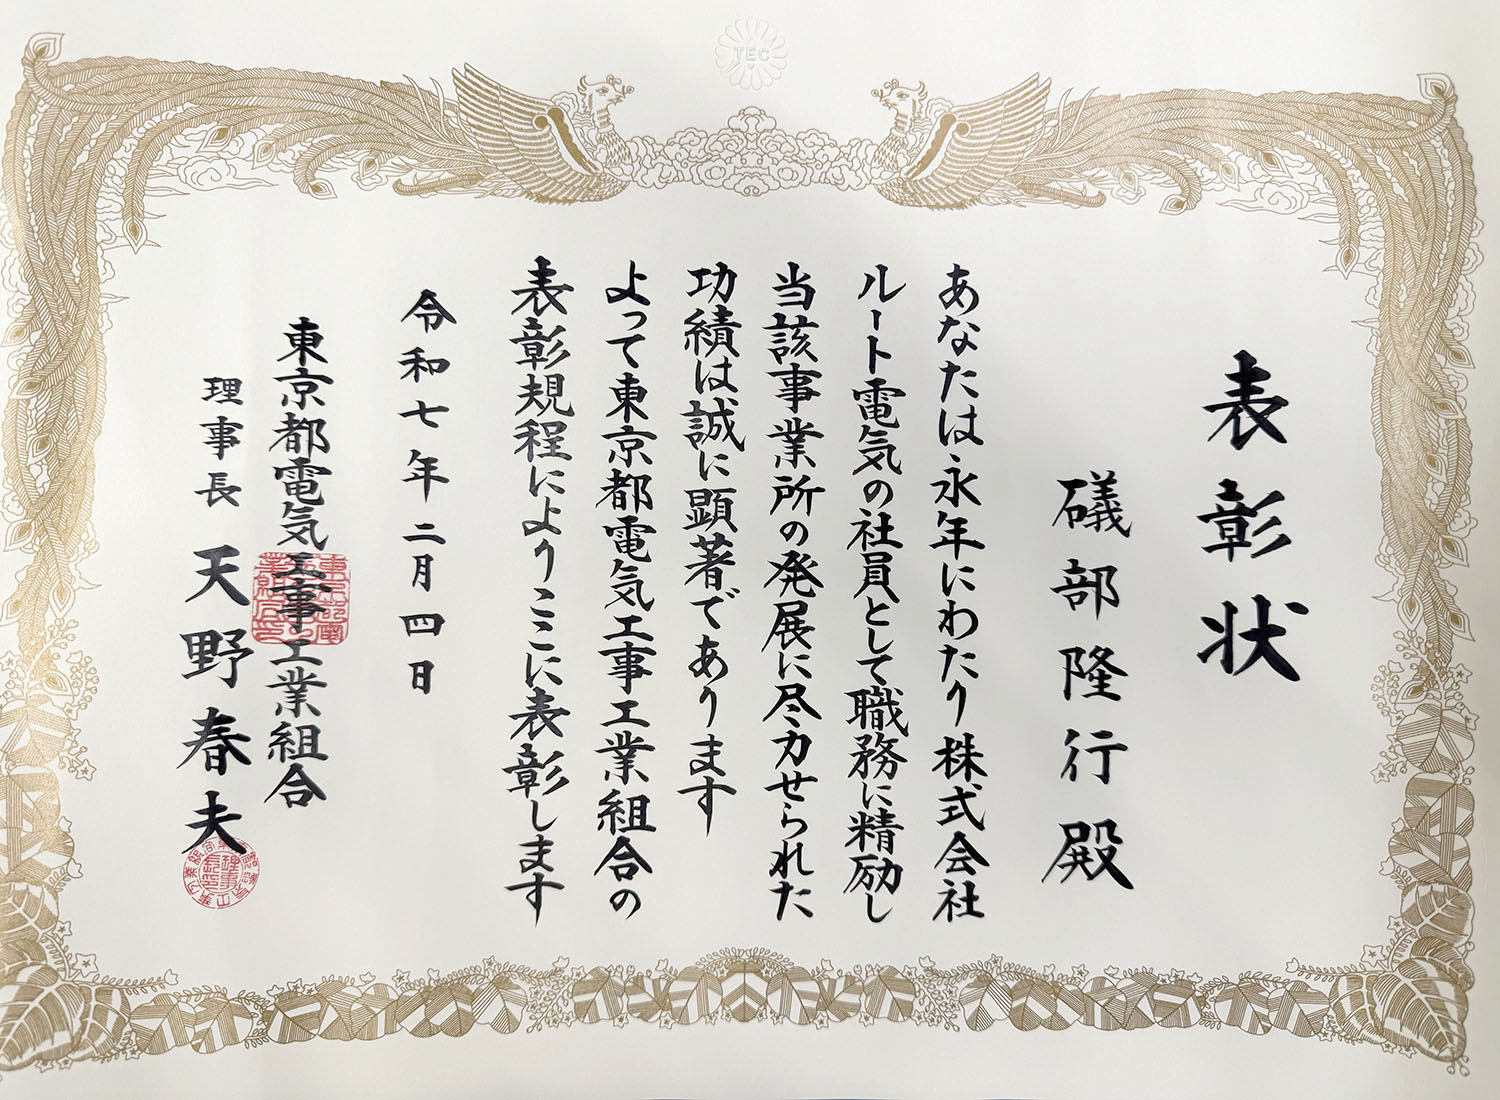 TEC
表彰状
礒部隆行殿
あなたは永年にわたり株式会社
ルート電気の社員として職務に精励し
当該事業所の発展に尽力せられた
功績は誠に顕著であります
よって東京都電気工事工業組合の
表彰規程によりここに表彰します
令和七年二月四日
東京都電気工事工業組合
理事長 天野春夫